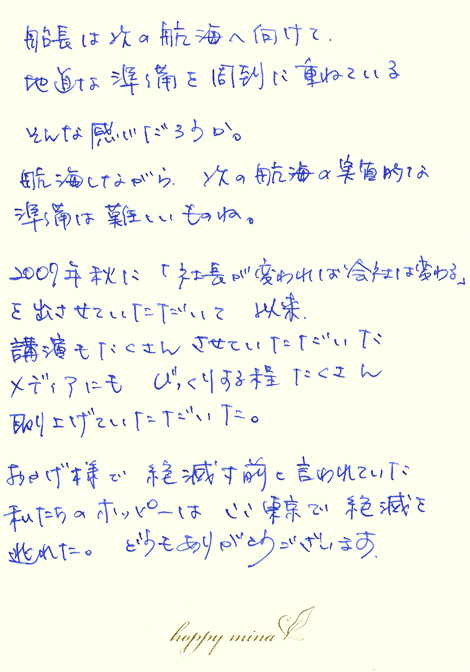 船長は次の航海へ向けて、
地道な準備を周到に重ねている
そんな感じだろうか。
航海しながら、次の航海の実質的な
準備は難しいものね。
2009年秋に「社長が変われば会社は変わる」
を出させていただいて 以来、
講演もたくさん させていただいた
メディアにも びっくりする程 たくさん
取り上げていただいた。
おかげ様で 絶滅寸前と言われていた
私たちのホッピーは 東京で 絶滅を
逃れた。 どうもありがとうございます.
happy mina